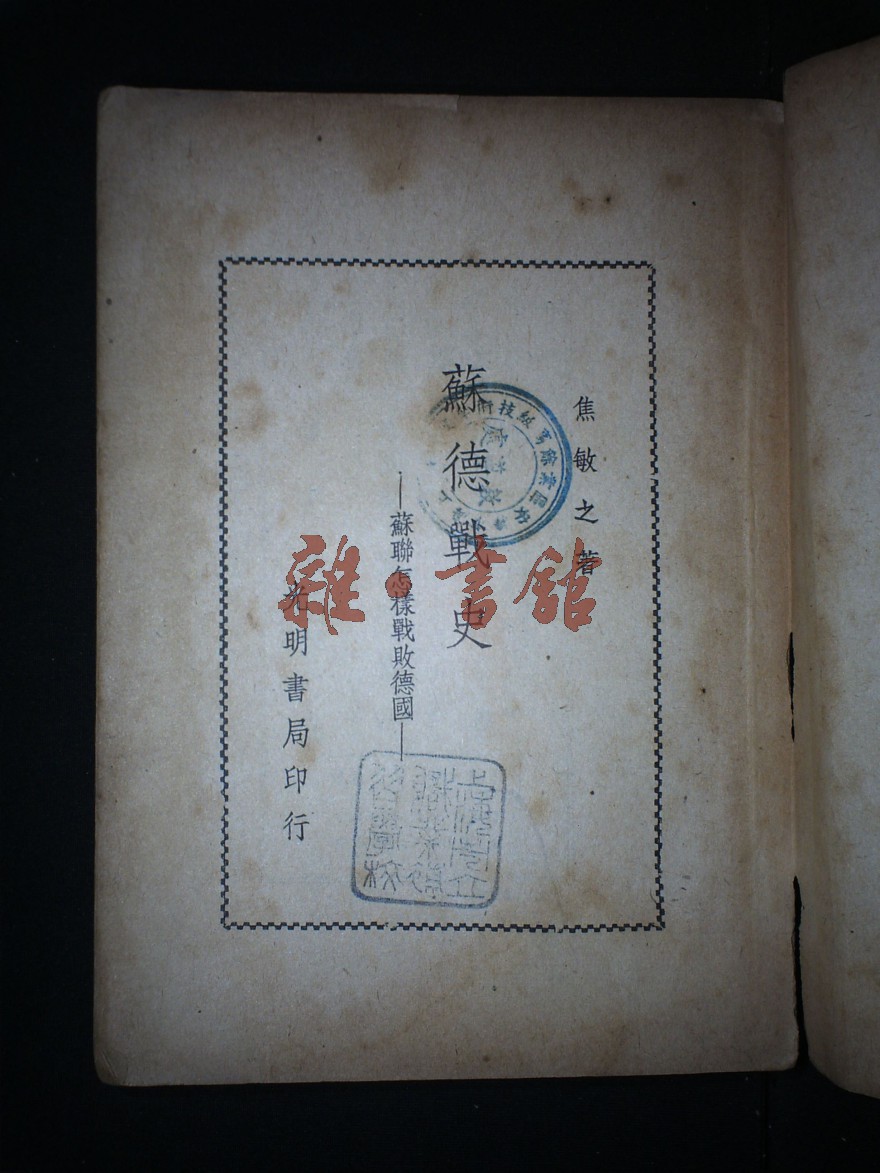 焦敏之著
蘇德戰史
——蘇聯怎樣戰敗德國——
光明書局印行
雜·書館